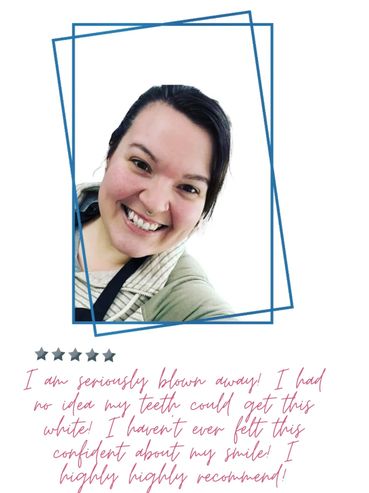 I am seriously blown away! I had
no idea my teeth could get this
white! I haven't ever felt this
confident about my smile! I
highly highly recommend!